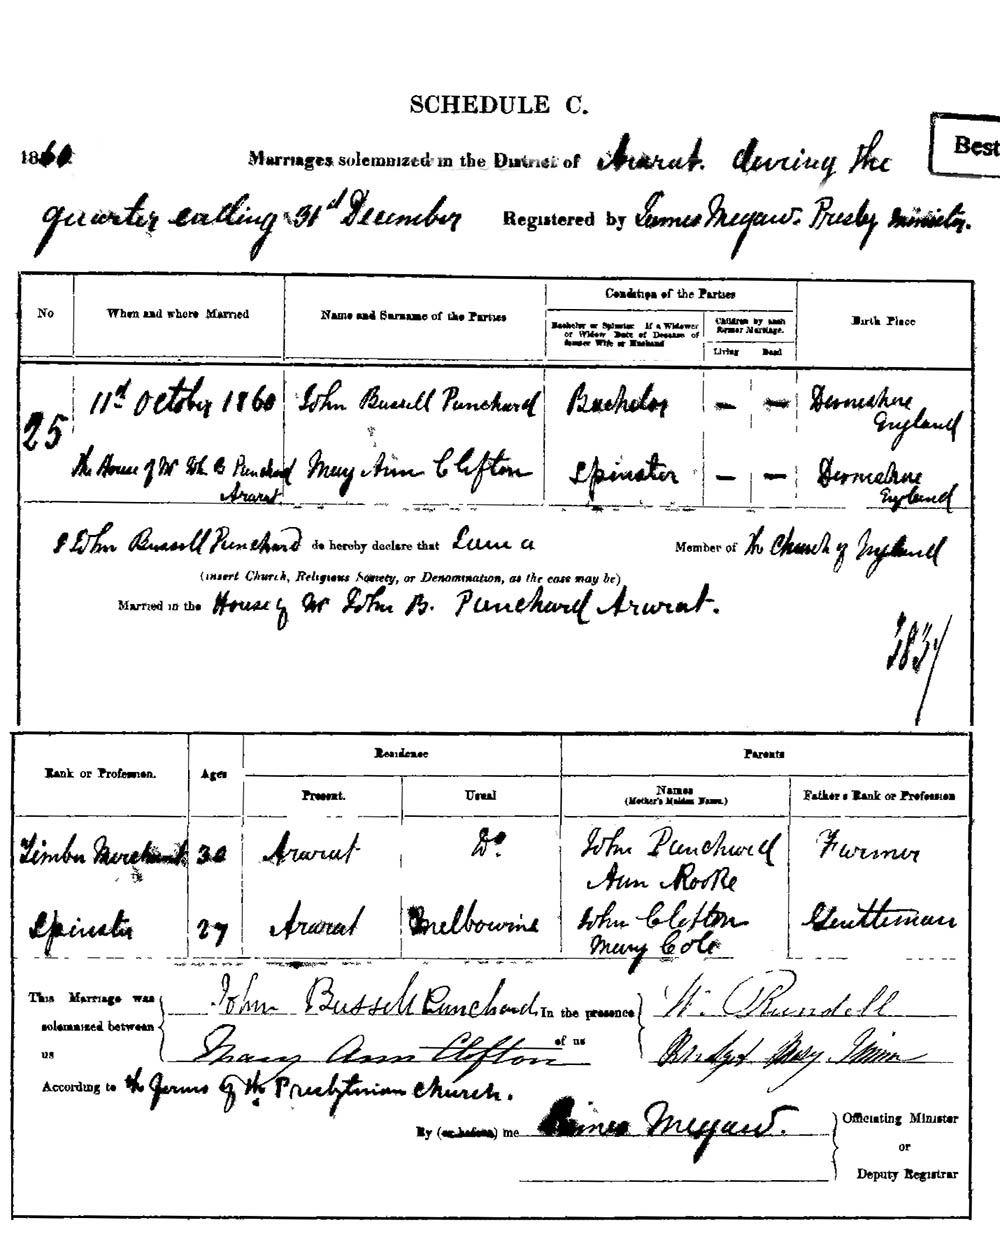 SCHEDULE C.
Best
1860 Marriages solemnized in the District of Ararat. during the
quarter ending 31st December Registered by James Megaw. Presby Minister.
No
When and where Married
Name and Surname of the Parties
Condition of the Parties
Bachelor or Spinster. If a Widower or Widow Date of Decease of former Wife or Husband
Children by each former Marriage.
Living
Dead
Birth Place
25
11th October 1860 John Bussell Punchard Bachelor — — Devonshire England
The House of Mr John B Punchard Ararat Mary Ann Clifton Spinster — — Devonshire England
I John Bussell Punchard do hereby declare that I am a Member of the Church of England
(insert Church, Religious Society, or Denomination, as the case may be)
Married in the House of Mr John B. Punchard Ararat.
Rank or Profession.
Ages
Residence
Present.
Usual
Parents
Names
(Mother's Maiden Name.)
Father's Rank or Profession
Timber Merchant 30 Ararat Do. John Punchard Farmer
Ann Rooke
Spinster 27 Ararat Melbourne John Clifton Gentleman
Mary Cole
This Marriage was solemnized between us
John Bussell Punchard
Mary Ann Clifton
In the presence of us
W. Rundell
According to the forms of the Presbyterian Church.
By (or before) me James Megaw.
Officiating Minister
or
Deputy Registrar